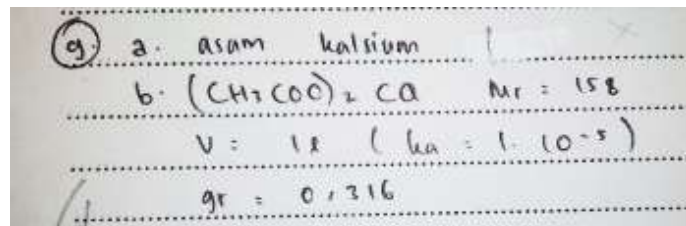 9. a. asam kalsium
b. (CH3COO)2 Ca Mr = 158
V = 1 l ( ka = 1. 10-5 )
gr = 0,316